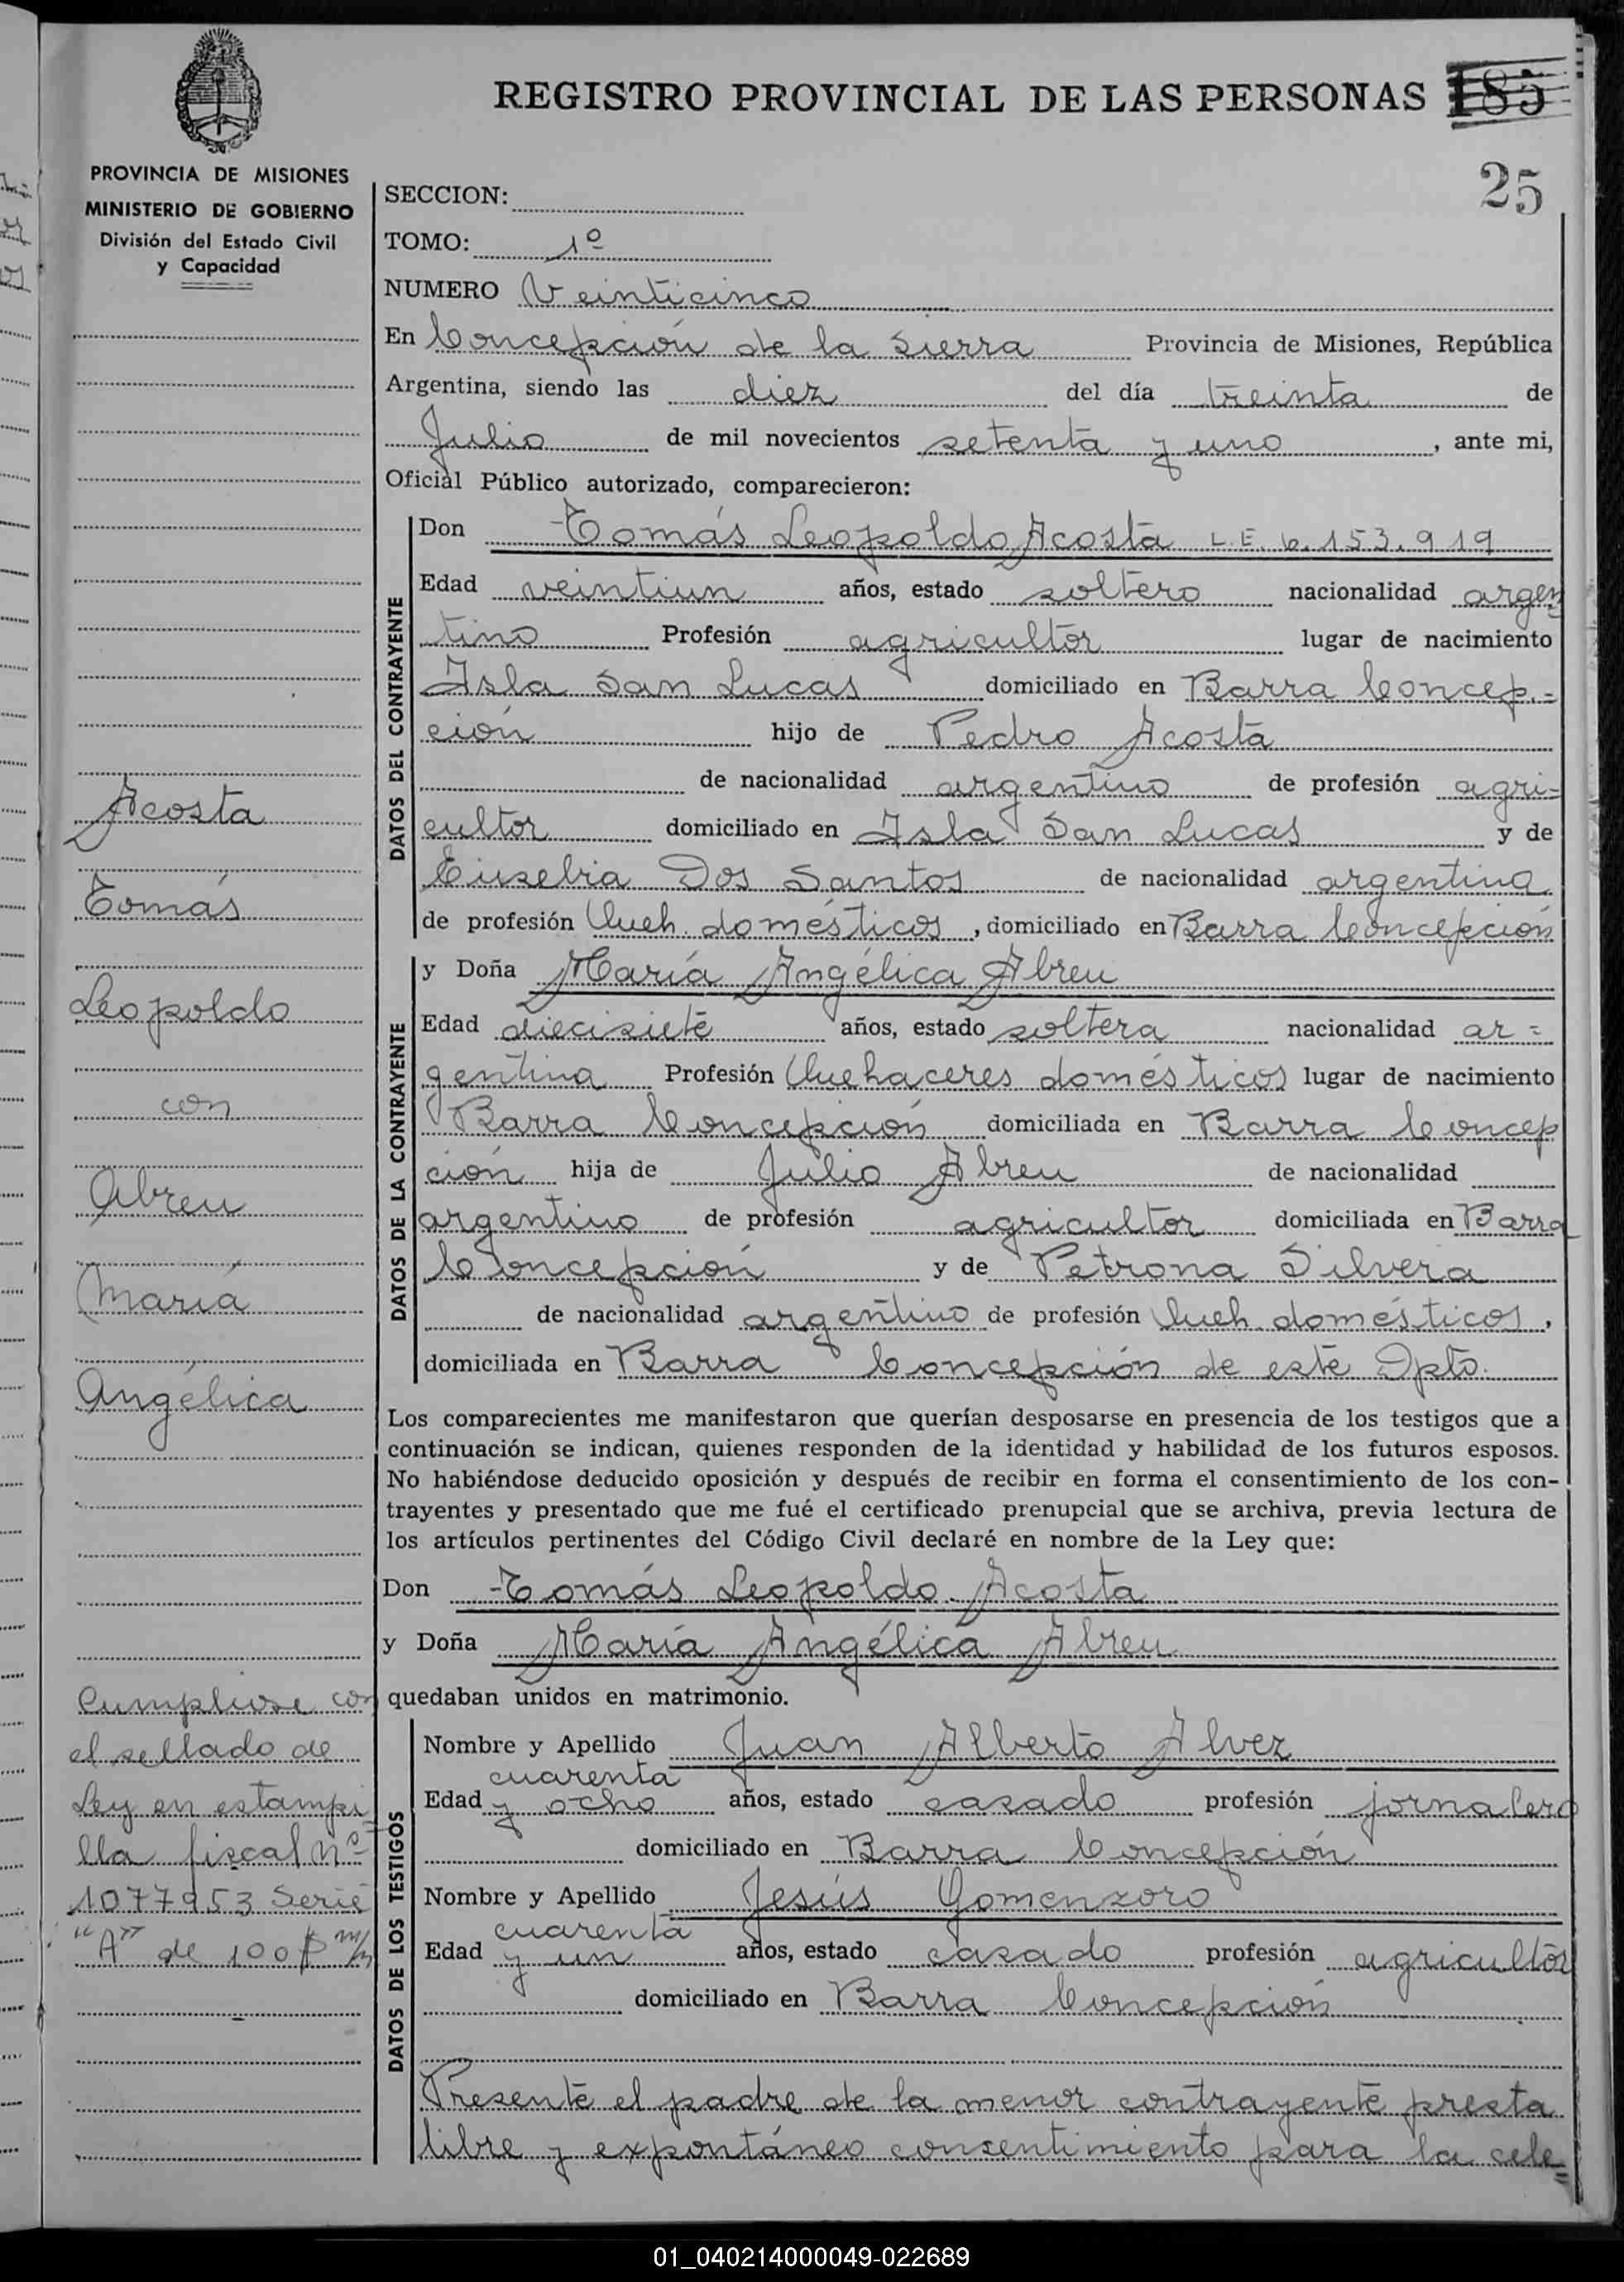 REGISTRO PROVINCIAL DE LAS PERSONAS 185
25
PROVINCIA DE MISIONES
MINISTERIO DE GOBIERNO
División del Estado Civil
y Capacidad
Acosta
Tomás
Leopoldo
con
Abreu
María
Angélica
Cumpliose con
el sellado de
Ley en estampi
lla fiscal Nº
1077953 Serie
"A" de 100 $ m/n
SECCION:
TOMO: 1º
NUMERO Veinticinco
En Concepción de la Sierra Provincia de Misiones, República
Argentina, siendo las diez del día treinta de
Julio de mil novecientos setenta y uno, ante mi,
Oficial Público autorizado, comparecieron:
DATOS DEL CONTRAYENTE
Don Tomás Leopoldo Acosta L.E. 6.153.919
Edad veintiun años, estado soltero nacionalidad argen
tino Profesión agricultor lugar de nacimiento
Isla San Lucas domiciliado en Barra Concep=
ción hijo de Pedro Acosta
de nacionalidad argentino de profesión agri=
cultor domiciliado en Isla San Lucas y de
Eusebia Dos Santos de nacionalidad argentina
de profesión Queh. domésticos, domiciliado en Barra Concepción
DATOS DE LA CONTRAYENTE
y Doña María Angélica Abreu
Edad diecisiete años, estado soltera nacionalidad ar=
gentina Profesión Quehaceres domésticos lugar de nacimiento
Barra Concepción domiciliada en Barra Concep
ción hija de Julio Abreu de nacionalidad
argentino de profesión agricultor domiciliada en Barra
Concepción y de Petrona Silvera
de nacionalidad argentino de profesión Queh. domésticos,
domiciliada en Barra Concepción de este Dpto.
Los comparecientes me manifestaron que querían desposarse en presencia de los testigos que a
continuación se indican, quienes responden de la identidad y habilidad de los futuros esposos.
No habiéndose deducido oposición y después de recibir en forma el consentimiento de los con-
trayentes y presentado que me fué el certificado prenupcial que se archiva, previa lectura de
los artículos pertinentes del Código Civil declaré en nombre de la Ley que:
Don Tomás Leopoldo Acosta
y Doña María Angélica Abreu
quedaban unidos en matrimonio.
DATOS DE LOS TESTIGOS
Nombre y Apellido Juan Alberto Alvez
cuarenta
Edad y ocho años, estado casado profesión jornalero
domiciliado en Barra Concepción
Nombre y Apellido Jesús Gomenzoro
cuarenta
Edad y un años, estado casado profesión agricultor
domiciliado en Barra Concepción
Presente el padre de la menor contrayente presta
libre y expontáneo consentimiento para la cele=
01_040214000049-022689